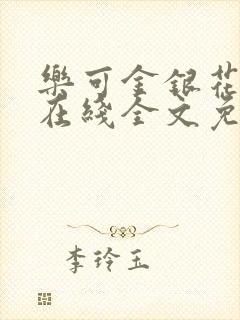 樂可金銀花
在綫全文免
李玲玉